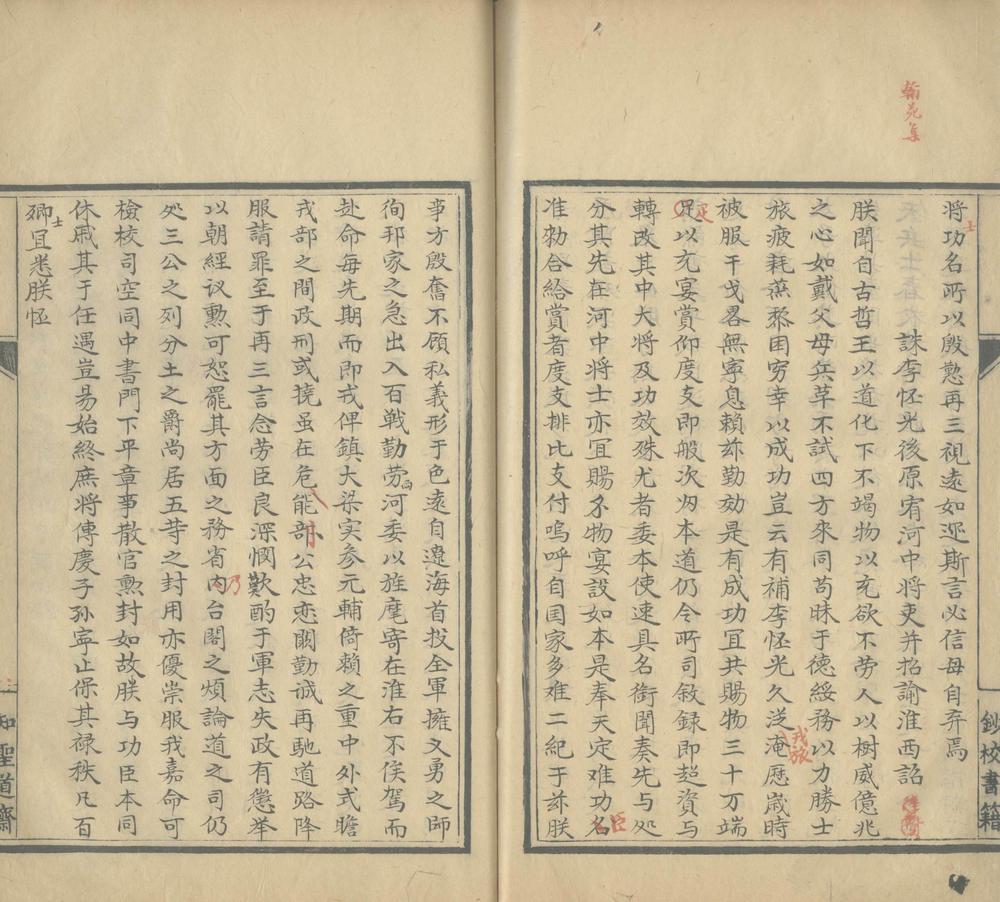 翰苑集
將功名所以殷懃再三視遠如迩斯言必信毋自弃焉
士
誅李怀光後原宥河中將吏并招諭淮西詔
朕聞自古哲王以道化下不竭物以充欲不劳人以樹威億兆
之心如戴父母兵革不試四方來同苟昧于德綏務以力勝士
旅疲耗蒸黎困穷幸以成功豈云有補李怪光久泛淹歷歲時
戎旅
被服干戈畧無寧息賴兹勤効是有成功冝共賜物三十万端
足以充宴賞仰度支即般次为本道仍令所司敘錄即超資与
定
轉改其中大將及功效殊尤者委本使速具名銜聞奏先与处
分其先在河中將士亦冝賜衣物宴設如本是奉天定难功名
臣
准勑合給賞者度支排比支付嗚呼自国家多难二紀于兹朕
鈔校書籍
事方殷奮不顧私義形于色遠自遼海首投全軍擁文勇之師
徇邦家之急出入百戦勤劳河委以旌麾寄在淮右不俟駕而
西
赴命每先期而即戎俾鎮大梁实参元輔倚賴之重中外式瞻
戎部之間政刑或撓虽在危能部公忠恋闕勤誠再馳道路降
服請罪至于再三言念劳臣良深憫歎酌于軍志失政有懲举
以朝經议勲可恕罷其方面之務省内台閣之煩論道之司仍
乃
处三公之列分土之爵尚居五等之封用亦優崇服我嘉命可
檢校司空同中書門下平章事散官勲封如故朕与功臣本同
休戚其于任遇豈易始終庶將傳慶子孙寧止保其禄秩凡百
卿冝悉朕怪
士
知聖道齋